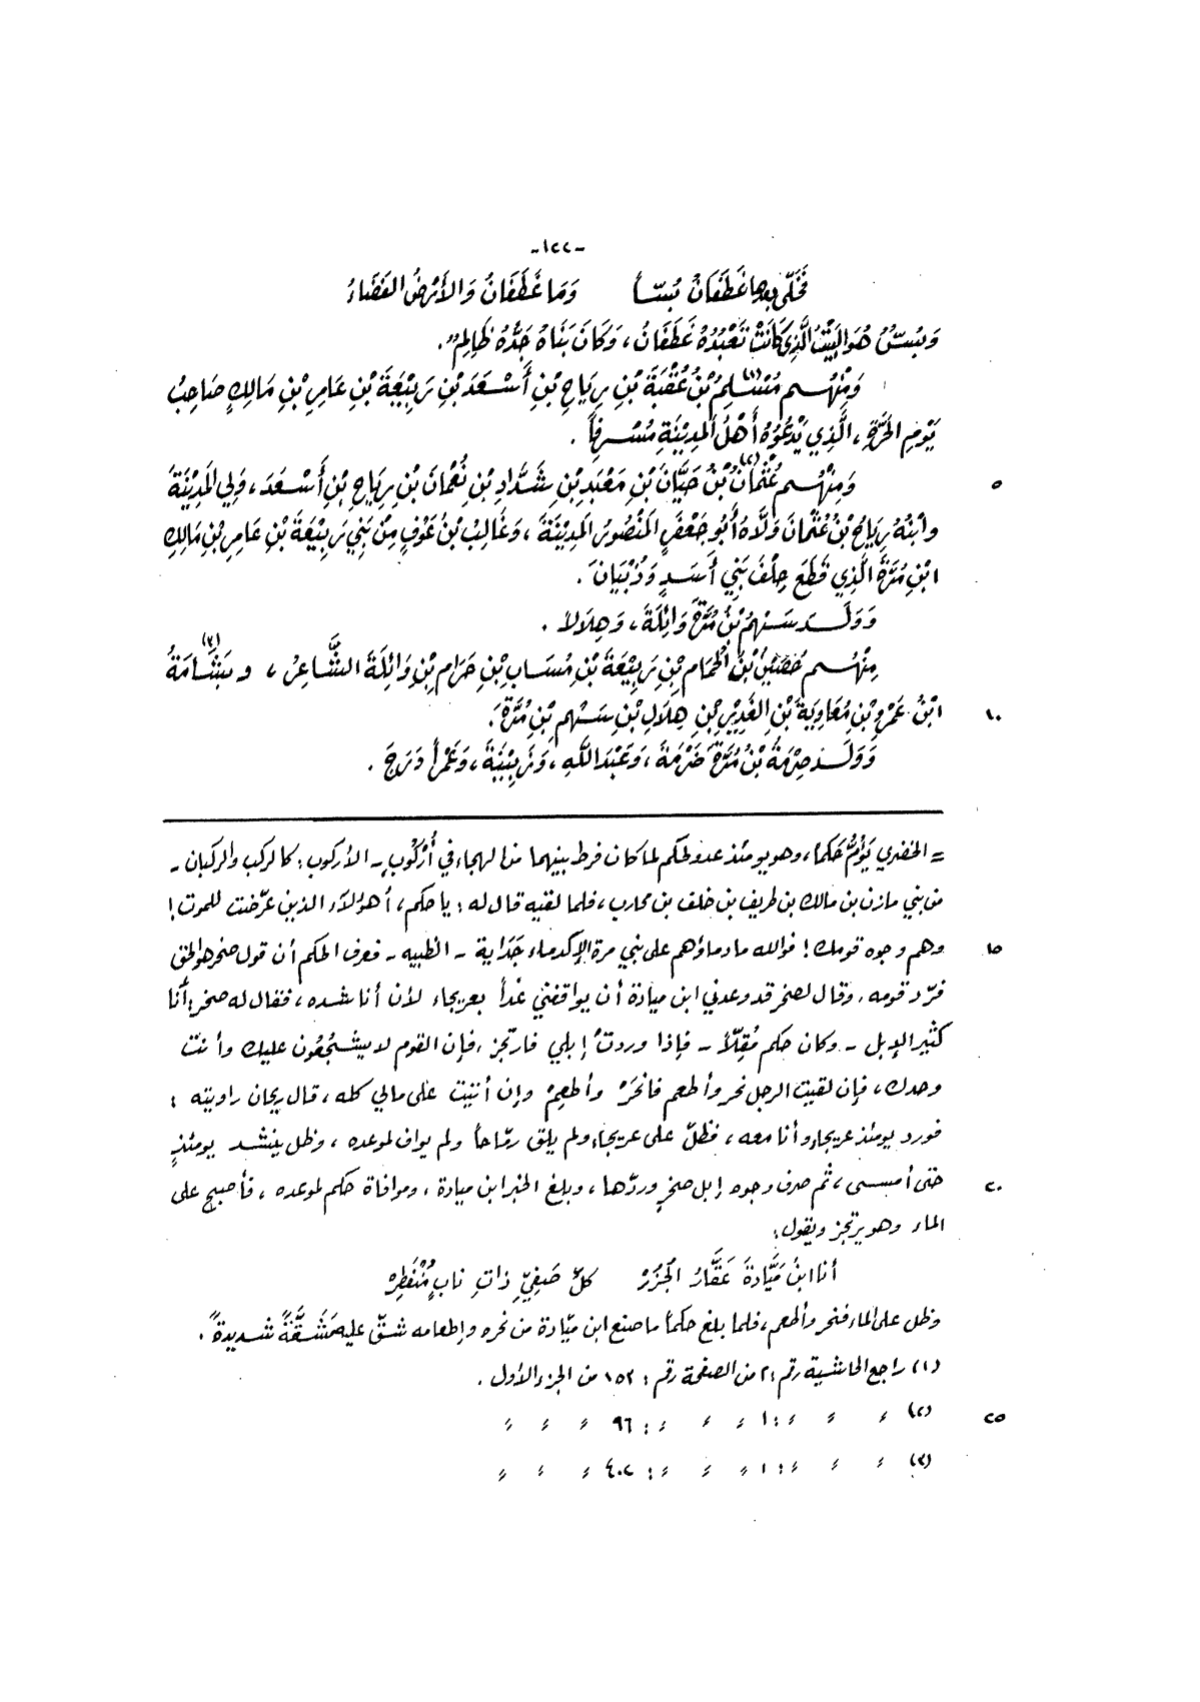 -١٢٢-
فَخَلَّى بعدها غَطَفَانُ بُسّاً وَمَا غَطَفَانُ وَالأَرْضُ الفَضَاءُ
وَبُسّ هُوَ البَيْتُ الَّذِي كَانَتْ تَعْبُدُهُ غَطَفَانُ، وَكَانَ بَنَاهُ جَدُّهُ ظَالِمٌ.
وَمِنْهُم مُسْلِمُ(١) بْنُ عُقْبَةَ بْنِ رِيَاحِ بْنِ أَسْعَدَ بْنِ رَبِيْعَةَ بْنِ عَامِرِ بْنِ مَالِكٍ صَاحِبُ
يَوْمِ الحَرَّةِ، الَّذِي يَدْعُوْهُ أَهْلُ المَدِيْنَةِ مُسْرِفاً.
وَمِنْهُم عُثْمَانُ(٢) بْنُ حَيَّانَ بْنِ مَعْبَدِ بْنِ شَدَّادِ بْنِ نُعْمَانَ بْنِ رِيَاحِ بْنِ أَسْعَدَ، وَلِيَ المَدِيْنَةَ ٥
وابْنُهُ رِيَاحُ بْنُ عُثْمَانَ وَلَّاهُ أَبُو جَعْفَرٍ المَنْصُورُ المَدِيْنَةَ، وَغَالِبُ بْنُ عَوْفٍ مِنْ بَنِي رَبِيْعَةَ بْنِ عَامِرِ بْنِ مَالِكِ
ابْنِ مُرَّةَ الَّذِي قَطَعَ حِلْفَ بَنِي أَسَدٍ وَذُبْيَانَ.
وَوَلَدَ سَهْمُ بْنُ مُرَّةَ وَائِلَةَ، وَهِلَالاً.
مِنْهُم حُصَيْنُ بْنُ الحُمَامِ بْنِ رَبِيْعَةَ بْنِ مُسَابِ بْنِ حَرَامِ بْنِ وَائِلَةَ الشَّاعِرُ، وبَشَامَةُ(٣)
ابْنُ عَمْرِو بْنِ مُعَاوِيَةَ بْنِ الغَدِيْرِ بْنِ هِلَالِ بْنِ سَهْمِ بْنِ مُرَّةَ. ١٠
وَوَلَدَ صِرْمَةُ بْنُ مُرَّةَ ضَرْمَةَ، وَعَبْدَ اللَّهِ، وَزَبِيْنَةَ، وَعَمْراً دَرَجَ.
= الخضري يَؤُمُّ حَكَماً، وهو يومئذ عدو لحكم لما كان فرط بينهما من الهجاء في أُرْكُوبٍ - الأركوب: كالركب والركبان -
من بني مازن بن مالك بن طريف بن خلف بن محارب، فلما لقيه قال له: يا حكم، أهؤلاء الذين عرّضت للموت!
وهم وجوه قومك! فوالله ما دماؤهم على بني مرة إلا كدماء جَدَاية - الظبيه - فعرف الحكم أن قول صخر هو الحق ١٥
فردّ قومه، وقال لصخر قد وعدني ابن ميادة أن يواقفني غداً بعريجاء لأن أناشده، فقال له صخر: أنا
كثير الإبل - وكان حكم مُقِلّاً - فإذا وردتْ إبلي فارتجز، فإن القوم لا يشجُعُون عليك وأنت
وحدك، فإن لقيت الرجل نحر وأطعم فانحَرْ وأطعِمْ وإن أتيت على مالي كله، قال ريحان راويته:
فورد يومئذ عريجاء وأنا معه، فظلّ على عريجاء ولم يلق رمّاحاً ولم يواف لموعده، وظل ينشد يومئذٍ
حتى أمسى، ثم صرف وجوه إبل صخرٍ وردّها، وبلغ الخبر ابن ميادة، وموافاة حكم لموعده، فأصبح على ٢٠
الماء وهو يرتجز ويقول:
أنا ابنُ مَيَّادةَ عَقَّارُ الجُزُرْ كلّ صَفِيٍّ ذاتِ نابٍ مُنْفَطِرْ
وظل على الماء فنحر وأطعم، فلما بلغ حكماً ما صنع ابن ميّادة من نحره وإطعامه شقّ عليه مَشَقَّةً شديدةً.
(١) راجع الحاشية رقم: ٢ من الصفحة رقم: ١٥٢ من الجزء الأول.
(٢) ״ ״ ״: ١ ״ ״ ״: ٩٦ ״ ״ ״ ٢٥
(٣) ״ ״ ״: ١ ״ ״ ״: ٤٠٢ ״ ״ ״